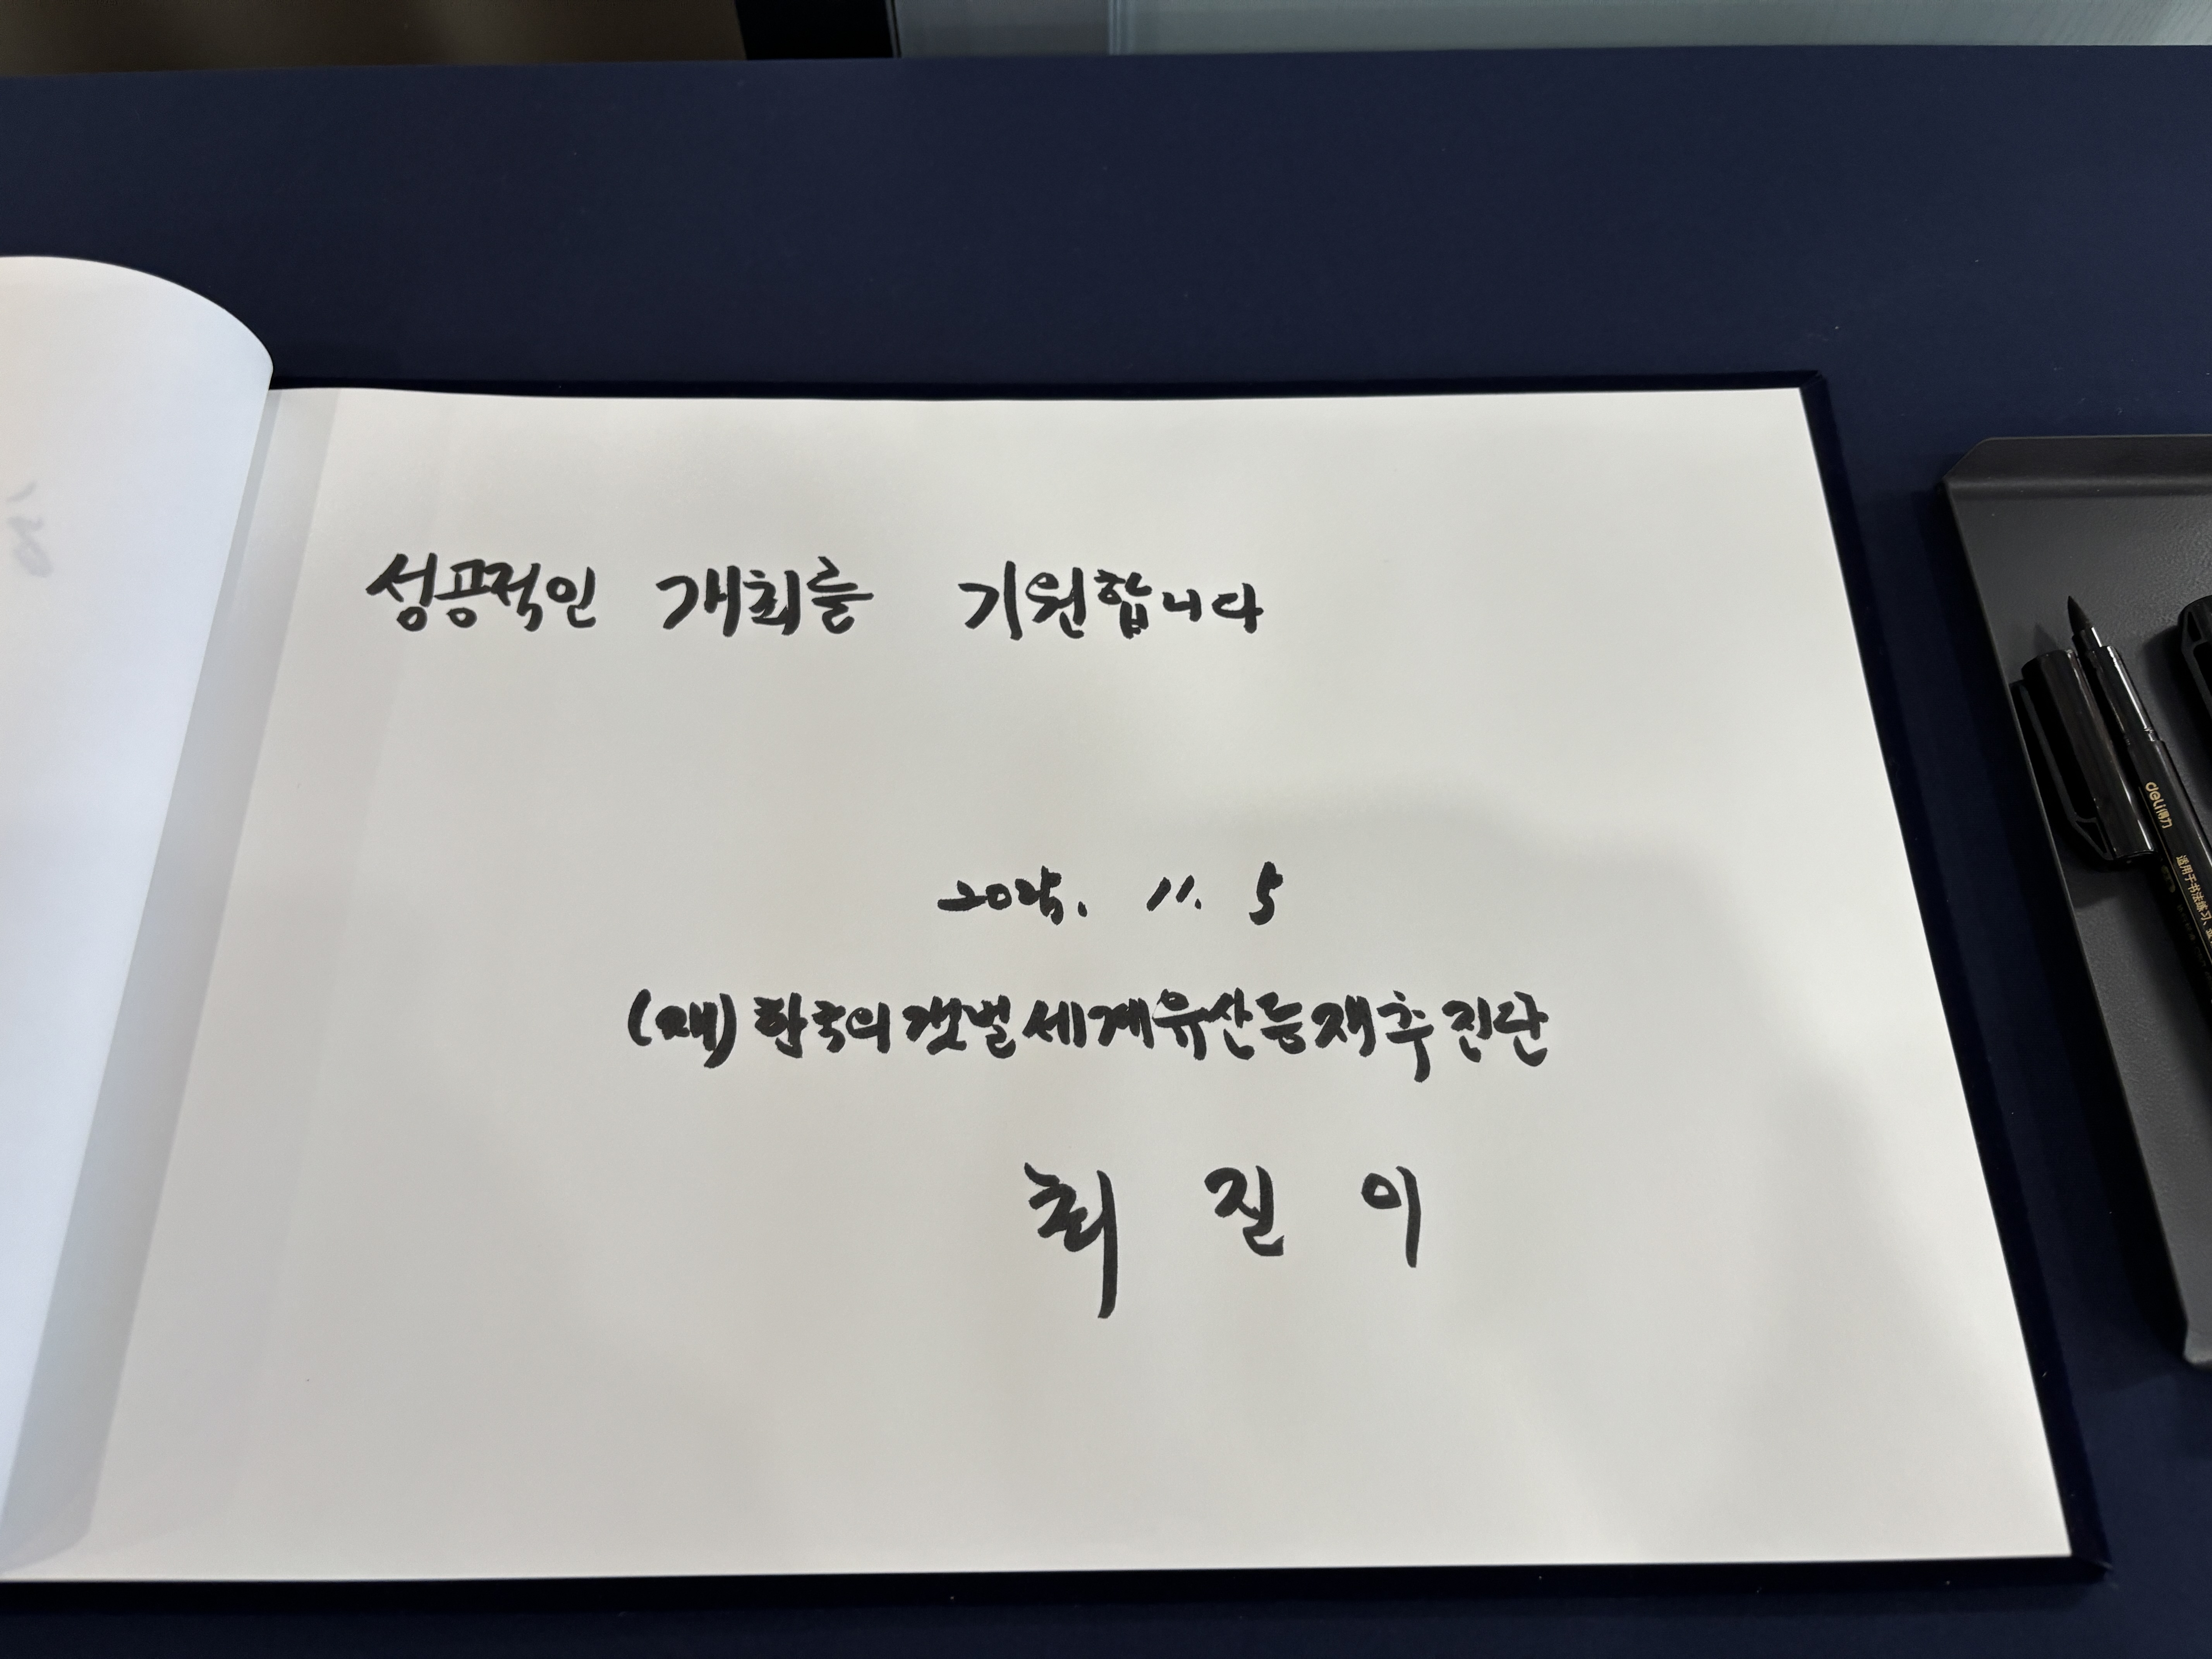 성공적인 개최를 기원합니다
2025. 11. 5
(재)한국의갯벌세계유산등재추진단
최 진 이
deli得力
适用于书法练习、